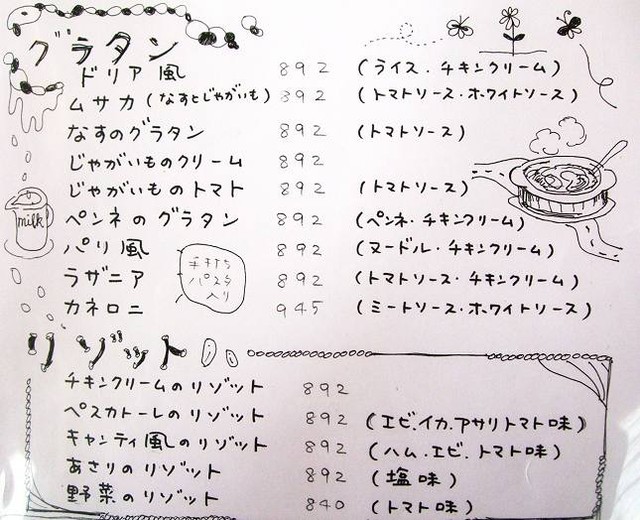 グラタン
ドリア風 892 (ライス・チキンクリーム)
ムサカ(なすとじゃがいも) 892 (トマトソース・ホワイトソース)
なすのグラタン 892 (トマトソース)
じゃがいものクリーム 892
じゃがいものトマト 892 (トマトソース)
milk
ペンネのグラタン 892 (ペンネ・チキンクリーム)
パリ風 892 (ヌードル・チキンクリーム)
手打ち
パスタ
入り
ラザニア 892 (トマトソース・チキンクリーム)
カネロニ 945 (ミートソース・ホワイトソース)
リゾット
チキンクリームのリゾット 892
ペスカトーレのリゾット 892 (エビ.イカ.アサリトマト味)
キャンティ風のリゾット 892 (ハム.エビ.トマト味)
あさりのリゾット 892 (塩味)
野菜のリゾット 840 (トマト味)